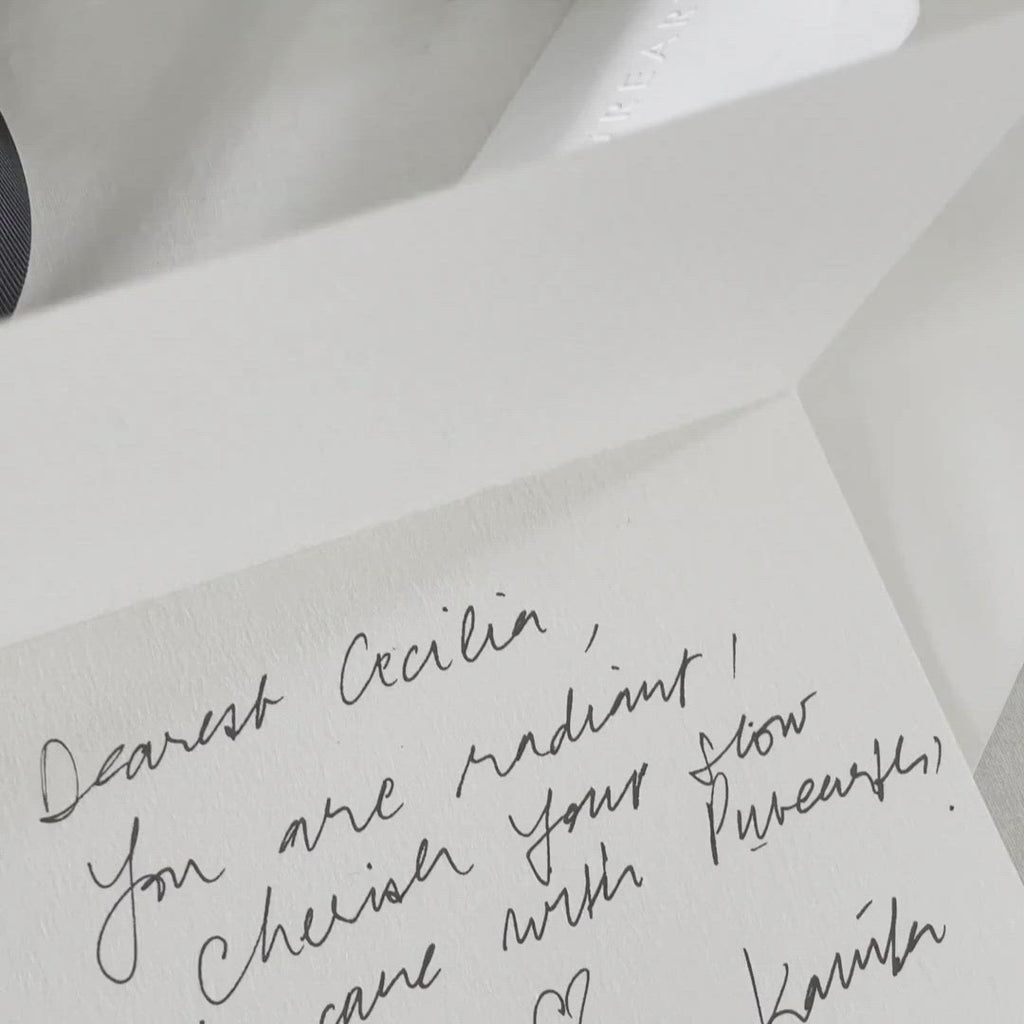 UREAR
Dearest Cecilia,
You are radiant!
Cherish your glow
care with Purearth!
♡ Kavita